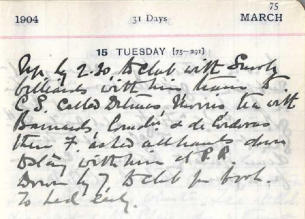 75
1904 31 Days MARCH
15 TUESDAY [75-291]
Up by 2.30, to Club with
billiards with him
C.S. Called tea with
Barnards, & de Cordovas
then F. asked all hands down
to stay with him at P.R.
Down by 7 to Club for book.
To bed early.